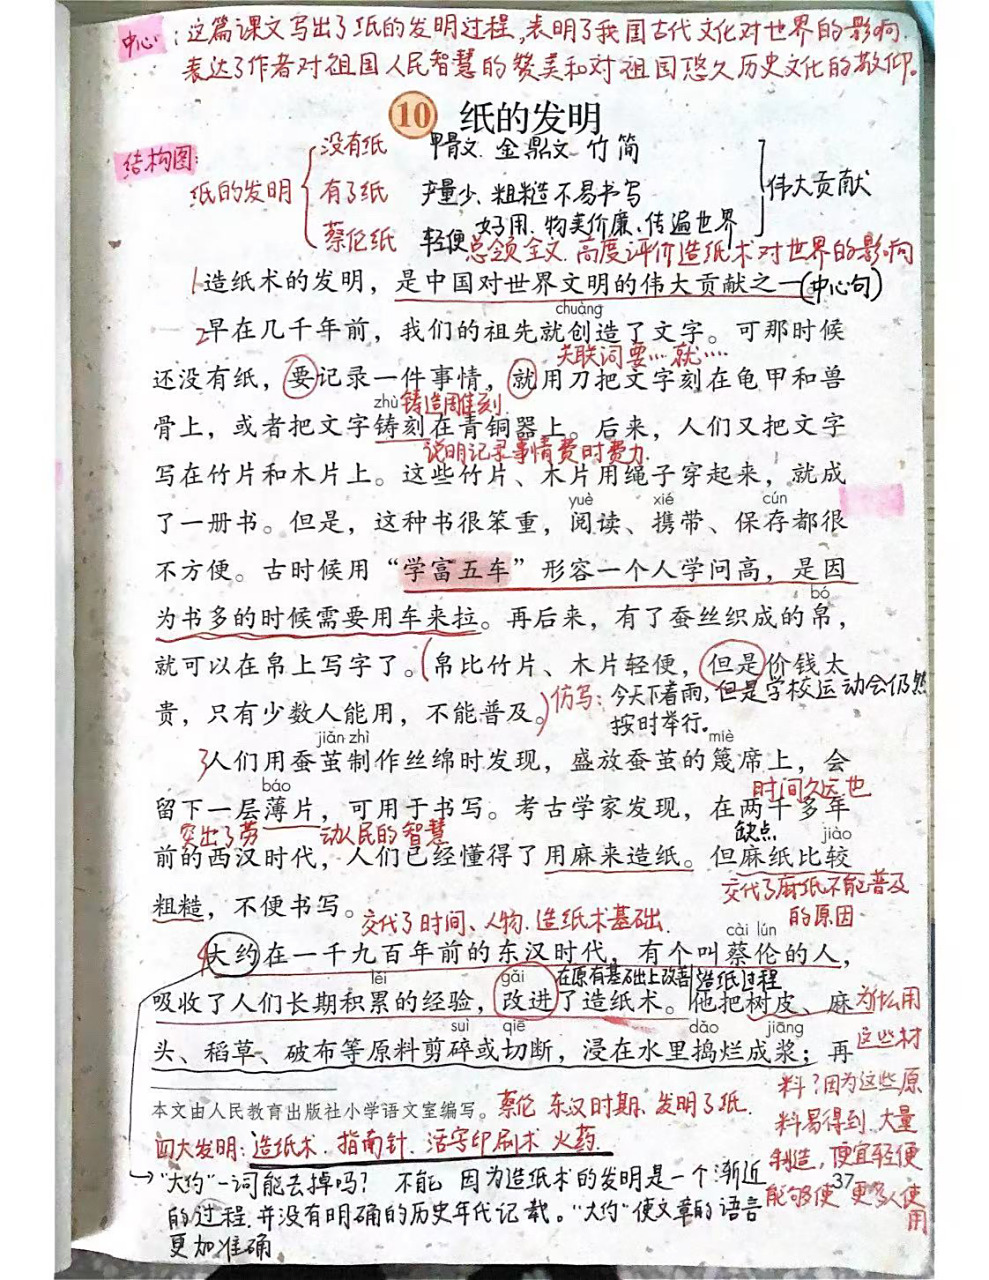 中心：这篇课文写出了纸的发明过程，表明了我国古代文化对世界的影响.
表达了作者对祖国人民智慧的赞美和对祖国悠久历史文化的敬仰。
10 纸的发明
结构图:
纸的发明
没有纸 甲骨文. 金 鼎文 竹 简
有了纸 产量少、粗糙 不易书写
蔡伦纸 轻便 好用、物美价廉、传遍世界
伟大贡献
总领全文. 高度评价造纸术对世界的影响
1造纸术的发明，是中国对世界文明的伟大贡献之一(中心句)
chuàng
2早在几千年前，我们的祖先就创造了文字。可那时候
关联词要…就……
还没有纸，要记录一件事情，就用刀把文字刻在龟甲和兽
zhù 铸造雕刻
骨上，或者把文字铸刻在青铜器上。后来，人们又把文字
说明记录事情费时费力.
写在竹片和木片上。这些竹片、木片用绳子穿起来，就成
yuè xié cún
了一册书。但是，这种书很笨重，阅读、携带、保存都很
不方便。古时候用“学富五车”形容一个人学问高，是因
bó
为书多的时候需要用车来拉。再后来，有了蚕丝织成的帛，
就可以在帛上写字了。(帛比竹片、木片轻便，但是价钱太
贵，只有少数人能用，不能普及。)
仿写：今天下着雨，但是学校运动会仍然
按时举行。
jiǎn zhì miè
3人们用蚕茧制作丝绵时发现，盛放蚕茧的篾席上，会
báo 时间久远也
留下一层薄片，可用于书写。考古学家发现，在两千多年
突出了劳动人民的智慧 缺点 jiào
前的西汉时代，人们已经懂得了用麻来造纸。但麻纸比较
粗糙，不便书写。
交代了麻纸不能普及
的原因.
交代了时间、人物. 造纸术基础.
cài lún
4大约在一千九百年前的东汉时代，有个叫蔡伦的人，
lěi gǎi 在原有基础上改善 造纸过程
吸收了人们长期积累的经验，改进了造纸术。他把树皮、麻
suì qiē dǎo jiāng
头、稻草、破布等原料剪碎或切断，浸在水里捣烂成浆；再
为什么用
这些材
料？因为这些原
料易得到. 大量
制造，便宜轻便
能够使 更多人使
用
本文由人民教育出版社小学语文室编写。
蔡伦 东汉时期、发明了纸.
四大发明: 造纸术. 指南针. 活字印刷术 火药.
37
“大约”一词能去掉吗？ 不能 因为造纸术的发明是一个渐近
的过程. 并没有明确的历史年代记载。“大约”使文章的语言
更加准确